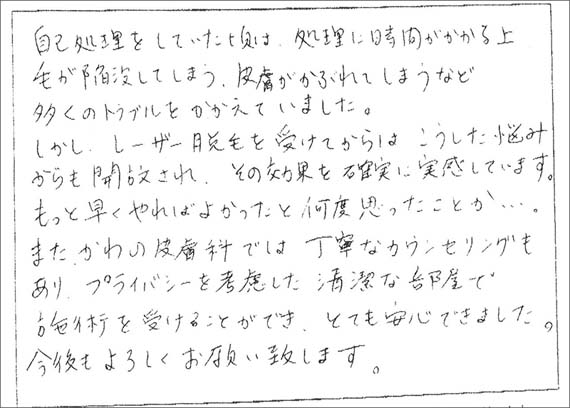 自己処理をしていた頃は、処理に時間がかかる上
毛が陥没してしまう、皮膚がかぶれてしまうなど
多くのトラブルをかかえていました。
しかし、レーザー脱毛を受けてからは こうした悩み
からも開放され、その効果を確実に実感しています。
もっと早くやればよかったと何度思ったことか…。
また、かわの皮膚科では 丁寧なカウンセリングも
あり、プライバシーを考慮した 清潔な部屋で
施術を受けることができ、とても安心できました。
今後もよろしくお願い致します。